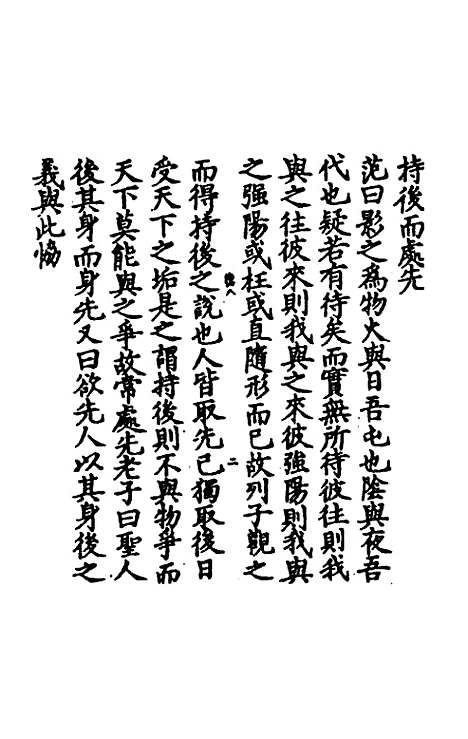 持後而處先
范曰影之為物火與日吾屯也陰與夜吾
代也疑若有待矣而實無所待彼往則我
與之往彼來則我與之來彼強陽則我與
之强陽或枉或直隨形而已故列子觀之
而得持後之說也人皆取先已獨取後曰
受天下之垢是之謂持後則不與物爭而
天下莫能與之爭故常處先老子曰聖人
後其身而身先又曰欲先人以其身後之
義與此恊
二